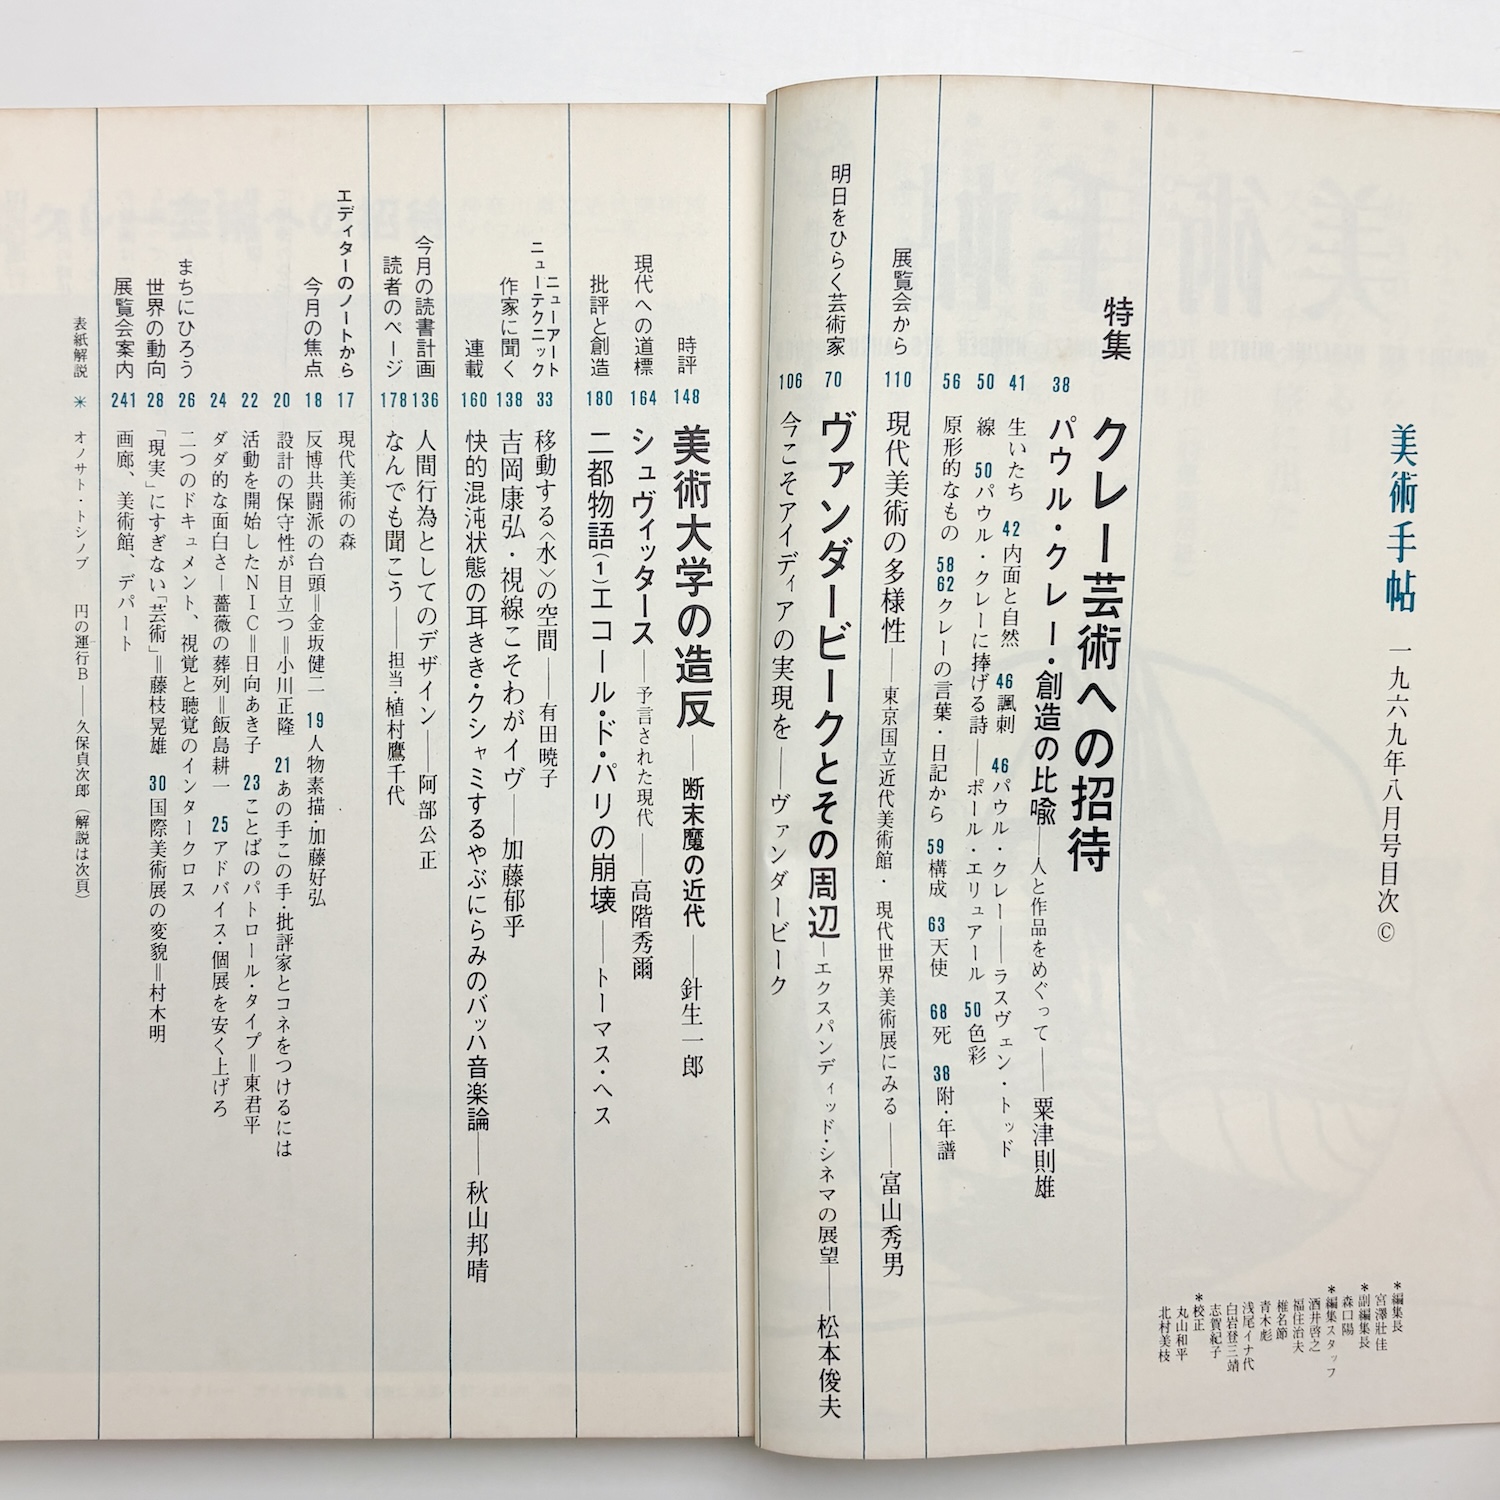 美術手帖 一九六九年八月号目次 ©
*編集長
宮澤壯佳
*副編集長
森口陽
*編集スタッフ
酒井啓之
福住治夫
椎名節
青木彪
浅尾イナ代
白岩登三靖
志賀紀子
*校正
丸山和平
北村美枝
特集 クレー芸術への招待
38 パウル・クレー・創造の比喩―人と作品をめぐって――粟津則雄
41 生いたち 42 内面と自然 46 諷刺 46 パウル・クレー――ラスヴェン・トッド
50 線 50 パウル・クレーに捧げる詩――ポール・エリュアール 50 色彩
56 原形的なもの 58 62 クレーの言葉・日記から 59 構成 63 天使 68 死 38 附・年譜
展覧会から 110 現代美術の多様性――東京国立近代美術館・現代世界美術展にみる――富山秀男
明日をひらく芸術家 70 ヴァンダービークとその周辺―エクスパンディッド・シネマの展望――松本俊夫
106 今こそアイディアの実現を――ヴァンダービーク
時評 148 美術大学の造反――断末魔の近代――針生一郎
現代への道標 164 シュヴィッタース――予言された現代――高階秀爾
批評と創造 180 二都物語(1)エコール・ド・パリの崩壊――トーマス・ヘス
ニューアート
ニューテクニック 33 移動する〈水〉の空間――有田暁子
作家に聞く 138 吉岡康弘・視線こそわがイヴ――加藤郁乎
連載 160 快的混沌状態の耳きき・クシャミするやぶにらみのバッハ音楽論――秋山邦晴
今月の読書計画 136 人間行為としてのデザイン――阿部公正
読者のページ 178 なんでも聞こう――担当・植村鷹千代
エディターのノートから 17 現代美術の森
今月の焦点 18 反博共闘派の台頭=金坂健二 19 人物素描・加藤好弘
20 設計の保守性が目立つ=小川正隆 21 あの手この手・批評家とコネをつけるには
22 活動を開始したNIC=日向あき子 23 ことばのパトロール・タイプ=東君平
24 ダダ的な面白さ―薔薇の葬列=飯島耕一 25 アドバイス・個展を安く上げろ
まちにひろう 26 二つのドキュメント、視覚と聴覚のインタークロス
世界の動向 28 「現実」にすぎない「芸術」=藤枝晃雄 30 国際美術展の変貌=村木明
展覧会案内 241 画廊、美術館、デパート
表紙解説 * オノサト・トシノブ 円の運行B――久保貞次郎(解説は次頁)